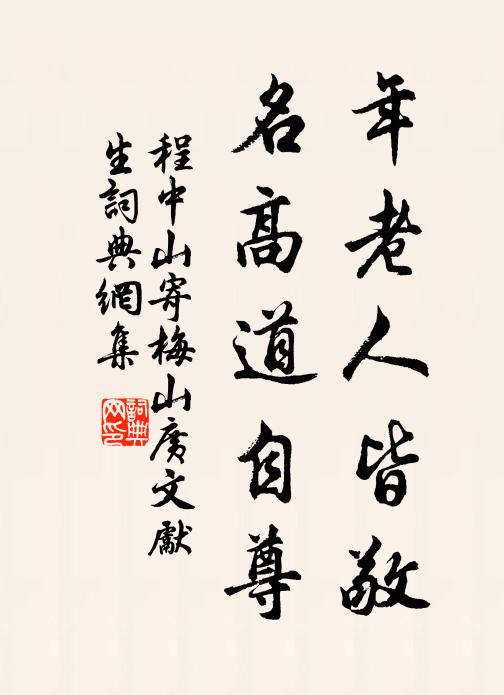 年老人皆敬
名高道自尊
程中山寄梅山文獻
生詞典網集
詞典
网印